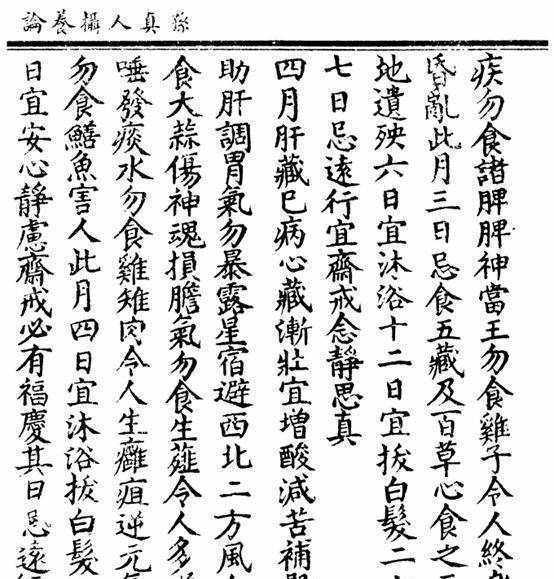 孫真人攝養論
疾勿食諸脾脾神當王勿食雞子令人終
昏亂此月三日忌食五藏及百草心食之
地遺殃六日宜沐浴十二日宜拔白髮二
七日忌遠行宜齋戒念靜思真
四月肝藏已病心藏漸壯宜增酸減苦補
助肝調胃氣勿暴露星宿避西北二方風
食大蒜傷神魂損膽氣勿食生薤令人多
唾發痰水勿食雞雉肉令人生癰疽逆元
勿食鱔魚害人此月四日宜沐浴拔白髮
日宜安心靜慮齋戒必有福慶其日忌遠